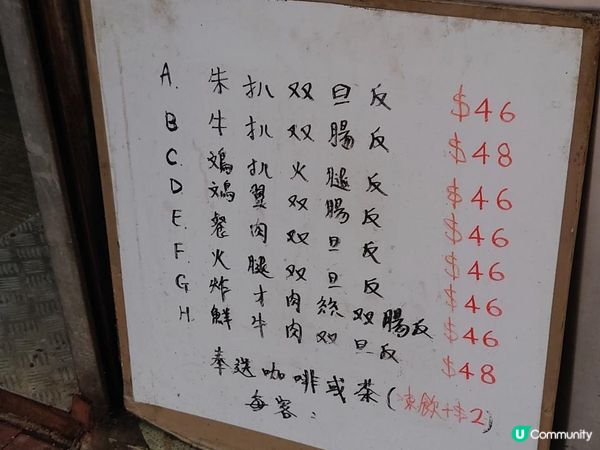 A. 朱扒双旦反 $46
B 牛扒双腸反 $48
C. 鳼扒火腿反 $46
D 鳼翼双腸反 $46
E. 餐肉双旦反 $46
F. 火腿双旦反 $46
G 炸才肉絲双腸反 $46
H. 鮮牛肉双旦反 $48
奉送咖啡或茶(凍飲+$2)
每客:
U Community